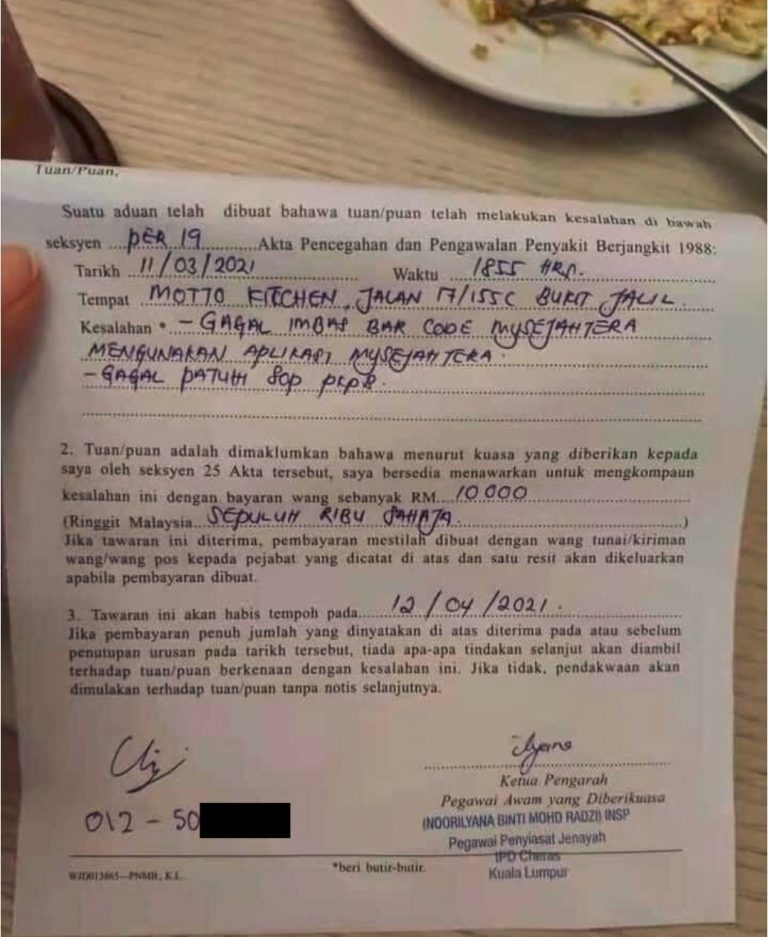 Tuan/Puan,
Suatu aduan telah dibuat bahawa tuan/puan telah melakukan kesalahan di bawah
seksyen ....PER 19............Akta Pencegahan dan Pengawalan Penyakit Berjangkit 1988:
Tarikh ..11/03/2021.................... Waktu .....1855 HRS.................
Tempat ..MOTTO KITCHEN, JALAN 17/155C BUKIT JALIL.
Kesalahan * - GAGAL IMBAS BAR CODE MYSEJAHTERA
MENGUNAKAN APLIKASI MYSEJAHTERA.
- GAGAL PATUH SOP PKPB.
2. Tuan/puan adalah dimaklumkan bahawa menurut kuasa yang diberikan kepada
saya oleh seksyen 25 Akta tersebut, saya bersedia menawarkan untuk mengkompaun
kesalahan ini dengan bayaran wang sebanyak RM...10 000..............................
(Ringgit Malaysia..SEPULUH RIBU SAHAJA........................................)
Jika tawaran ini diterima, pembayaran mestilah dibuat dengan wang tunai/kiriman
wang/wang pos kepada pejabat yang dicatat di atas dan satu resit akan dikeluarkan
apabila pembayaran dibuat.
3. Tawaran ini akan habis tempoh pada......12/04/2021.....................
Jika pembayaran penuh jumlah yang dinyatakan di atas diterima pada atau sebelum
penutupan urusan pada tarikh tersebut, tiada apa-apa tindakan selanjut akan diambil
terhadap tuan/puan berkenaan dengan kesalahan ini. Jika tidak, pendakwaan akan
dimulakan terhadap tuan/puan tanpa notis selanjutnya.
Ketua Pengarah
Pegawai Awam yang Diberikuasa
(NOORILYANA BINTI MOHD RADZI) INSP
Pegawai Penyiasat Jenayah
IPD Cheras
Kuala Lumpur
012 - 50
*beri butir-butir.
WJD013865—PNMB., K.L.